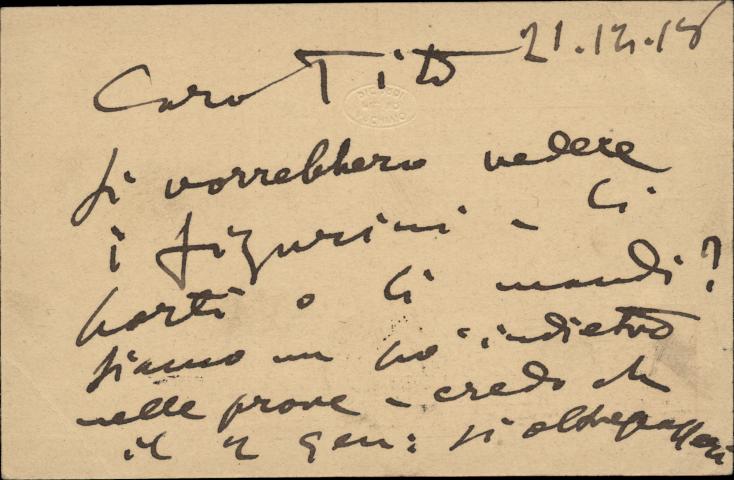 21.12.18
Caro Tito
si vorrebbero vedere
i figurini - li
porti o li mandi?
siamo un po' indietro
nelle prove - credo che
il 2 Gen: si oltrepasserà